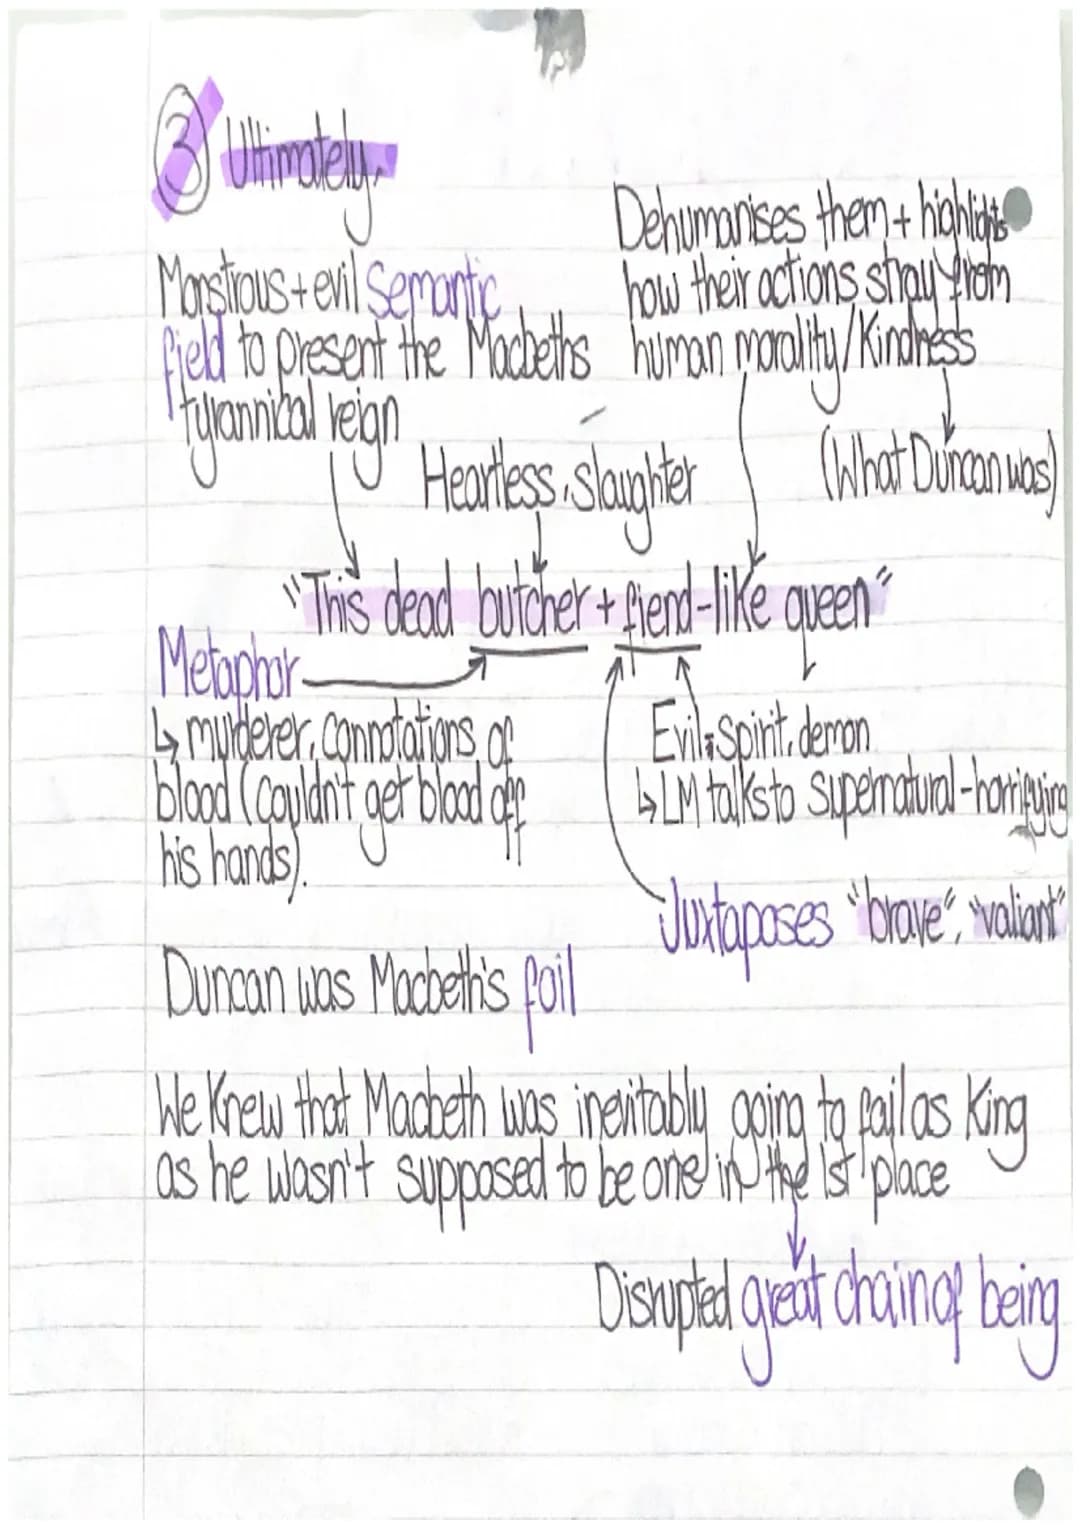 3 Ultimately,
Dehumanises them + highlights
how their actions stray from
human morality/Kindness
(What Duncan was)
Monstrous + evil Semantic
field to present the Macbeths
tyrannical reign
Heartless, Slaughter
"This dead butcher + fiend-like queen"
Metaphor
↳ murderer, connotations of
blood (couldn't get blood off
his hands).
Evil, spirit, demon
↳ LM talks to Supernatural - horrifying
Juxtaposes "brave", "valiant"
Duncan was Macbeth's foil
We Knew that Macbeth was inevitably going to fail as King
as he wasn't supposed to be one in the 1st place
Disrupted great chain of being